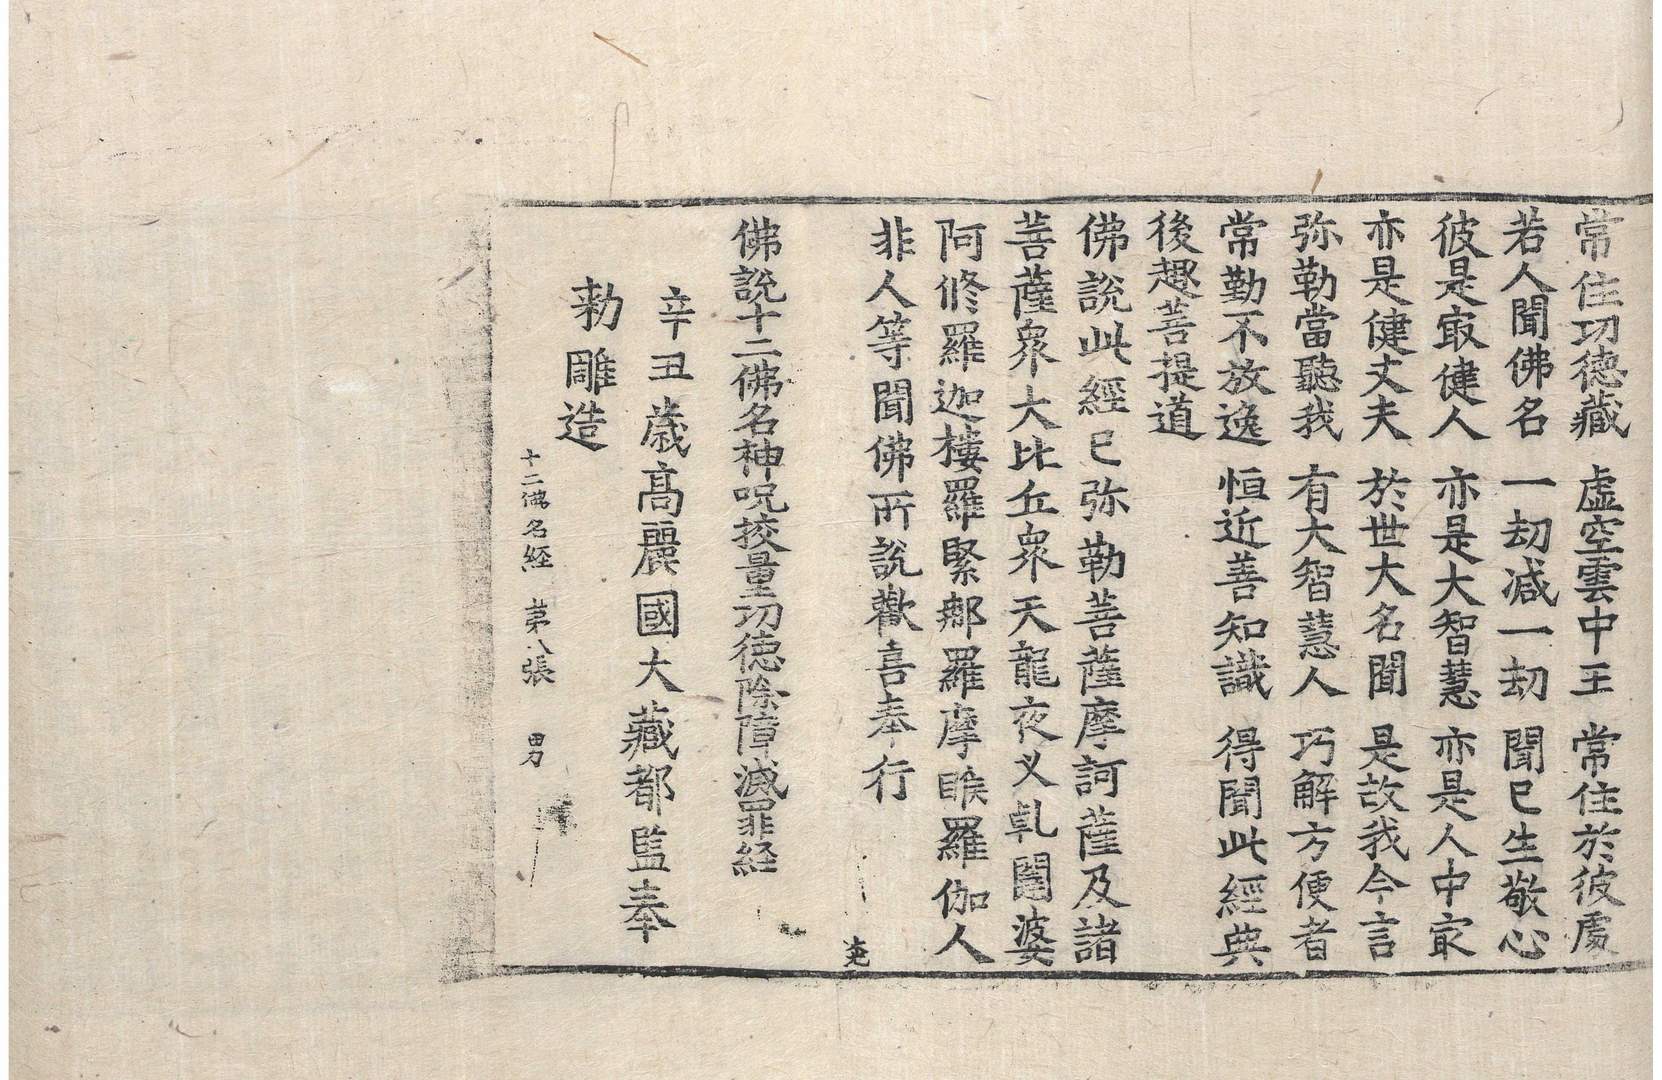 常住功德藏　虛空雲中王　常住於彼處
若人聞佛名　一劫減一劫　聞已生敬心
彼是㝡健人　亦是大智慧　亦是人中㝡
亦是健丈夫　於世大名聞　是故我今言
弥勒當聽我　有大智慧人　巧解方便者
常勤不放逸　恒近善知識　得聞此經典
後趣菩提道
佛說此經已弥勒菩薩摩訶薩及諸
菩薩衆大比丘衆天龍夜叉乹闥婆
阿修羅迦樓羅緊那羅摩睺羅伽人
非人等聞佛所說歡喜奉行
佛說十二佛名神呪挍量功德除障滅罪經
辛丑歲高麗國大藏都監奉
勑雕造
十二佛名経　苐八張　男